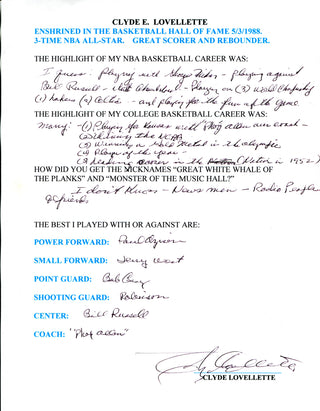 CLYDE E. LOVELLETTE
ENSHRINED IN THE BASKETBALL HALL OF FAME 5/3/1988.
3-TIME NBA ALL-STAR. GREAT SCORER AND REBOUNDER.
THE HIGHLIGHT OF MY NBA BASKETBALL CAREER WAS:
I guess: Playing with - Playing against
Bill Russell - - Playing on (3) World
(1) Lakers (2) Celtics - and playing for the fun of the game
THE HIGHLIGHT OF MY COLLEGE BASKETBALL CAREER WAS:
Many: - (1) Playing for Kansas with "Phog Allen" as coach -
(2) Winning the NCAA
(3) Winning a Gold Medal in the Olympic
(4) Player of the year -
(5) Leading scorer in the Nation in 1952)
HOW DID YOU GET THE NICKNAMES “GREAT WHITE WHALE OF
THE PLANKS” AND “MONSTER OF THE MUSIC HALL?”
I don't know - News men - Radio People
or friends
THE BEST I PLAYED WITH OR AGAINST ARE:
POWER FORWARD: Paul
SMALL FORWARD: Jerry West
POINT GUARD: Bob Cousy
SHOOTING GUARD: Robinson
CENTER: Bill Russell
COACH: "Phog Allen"
Clyde Lovellette
CLYDE LOVELLETTE